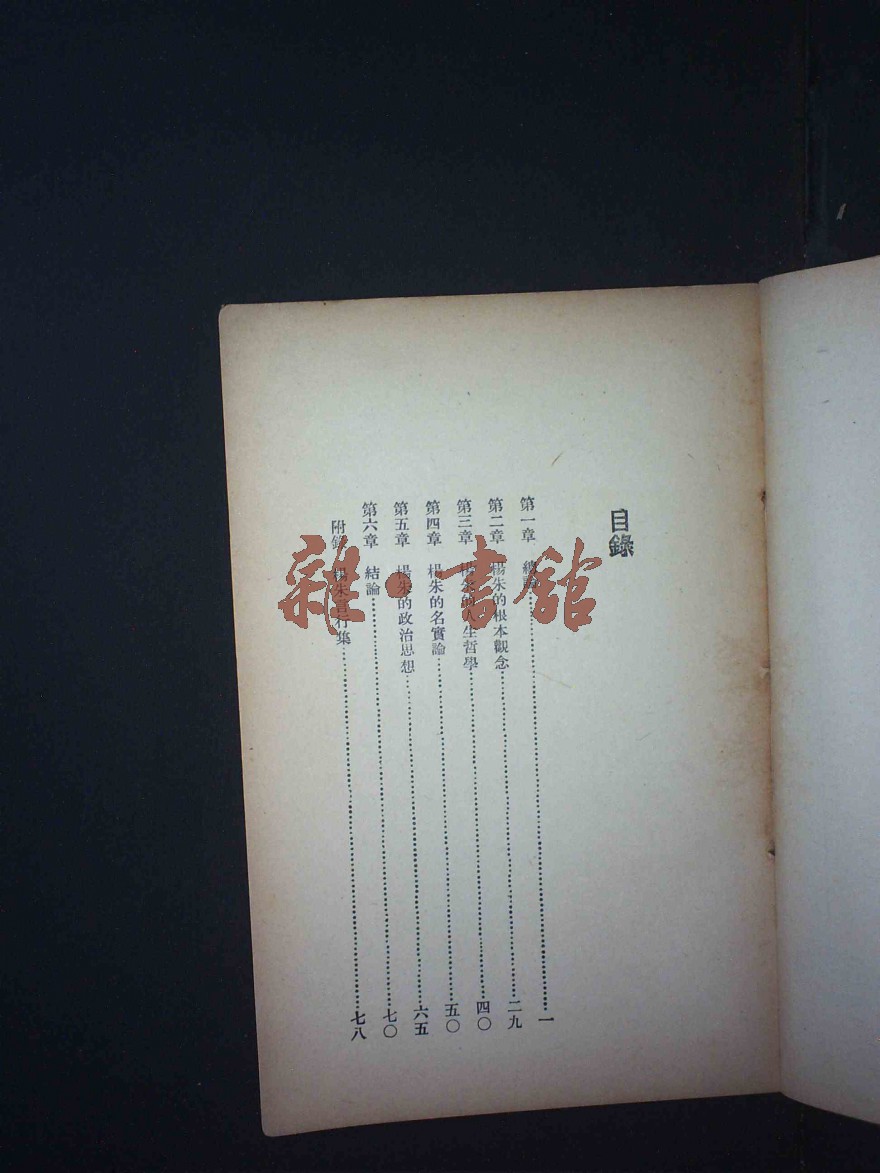 目錄
第一章　總論…………一
第二章　楊朱的根本觀念…………二九
第三章　楊朱的人生哲學…………四〇
第四章　楊朱的名實論…………五〇
第五章　楊朱的政治思想…………六五
第六章　結論…………七〇
附錄　楊朱言行集…………七八
雜·書館